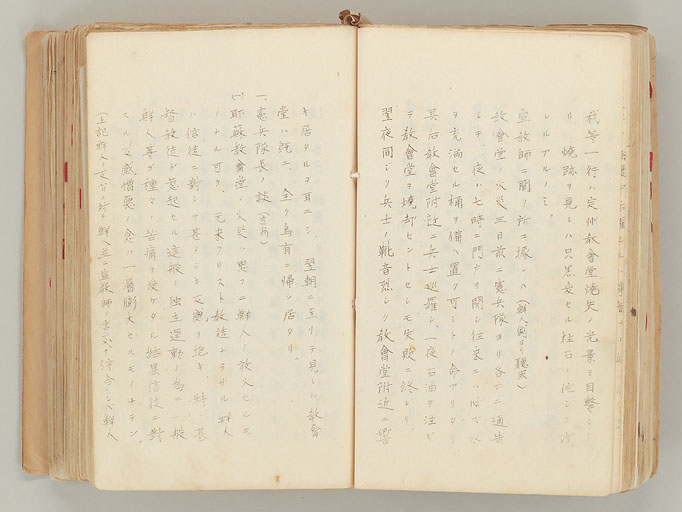 我等一行ハ定州教會堂焼失ノ光景ヲ目撃シ
リ 焼跡ヲ見レハ只黒変セル柱石ノ他
レルアルノミ。
宣教師ニ聞ク所ニ據レハ(鮮人側ヲ聽取)
教會堂ノ火災三日前ニ憲兵隊ヨリ各戸ニ通告
シテ、夜ハ七時ニ門戸ヲ閉シ往来ニハ水
ヲ充満セル桶ヲ備ヘ置ク可シトノ命アリタリ
其后教會堂附近ニ兵士巡羅シ、一夜石油ヲ注ギ
テ教會堂ヲ焼却セントセシモ失敗ニ終レリ、
翌夜同シク兵士ノ靴音烈シク教會堂附近ニ響
キ居タルヲ耳ニシ、翌朝ニ至リテ見レハ教會
堂ハ既ニ全ク烏有ニ帰シ居タリ。
一、憲兵隊長ノ談
(一)耶蘇教會堂ノ火災ハ思フニ鮮人ノ放火セシモ
ノナル可ク、元来クリスト教徒ナラサル鮮人
ハ信徒ニ對シテ甚シキ反感ヲ抱キ、特ニ基
督教徒ガ惹起セル這般ノ独立運動ノ為ニ一般
鮮人等ガ種々苦痛ヲ受ケタル結果信徒ニ對
スル反感憎悪ノ念ハ一層膨大セルモノナラン。
(上記鮮人ノ 鮮人並ニ宣教師ノ言 綜合シ 鮮人